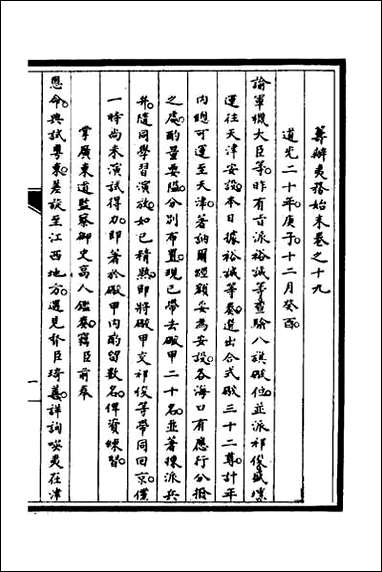 籌辦夷務始末卷之十九
道光二十年庚子十二月癸酉
諭軍機大臣等昨有旨派裕誠等查驗八旗礮位並派祁俊盛懷
運往天津安設本日據裕誠等奏選出合式礮三十二尊計年
內總可運至天津著訥爾經額妥為安設各海口有應行分撥
之處酌量要隘分別布置現已帶去礮甲二十名並著揀派兵
弁隨同學習演放如已精熟即將礮甲交祁俊等帶同回京儻
一時尚未演試得力即著於礮甲內酌留數名俾資練習
掌廣東道監察御史高人鑑奏竊臣前奉
恩命典試粵東差竣至江西地方遇見督臣琦善詳詢㖕夷在津
一